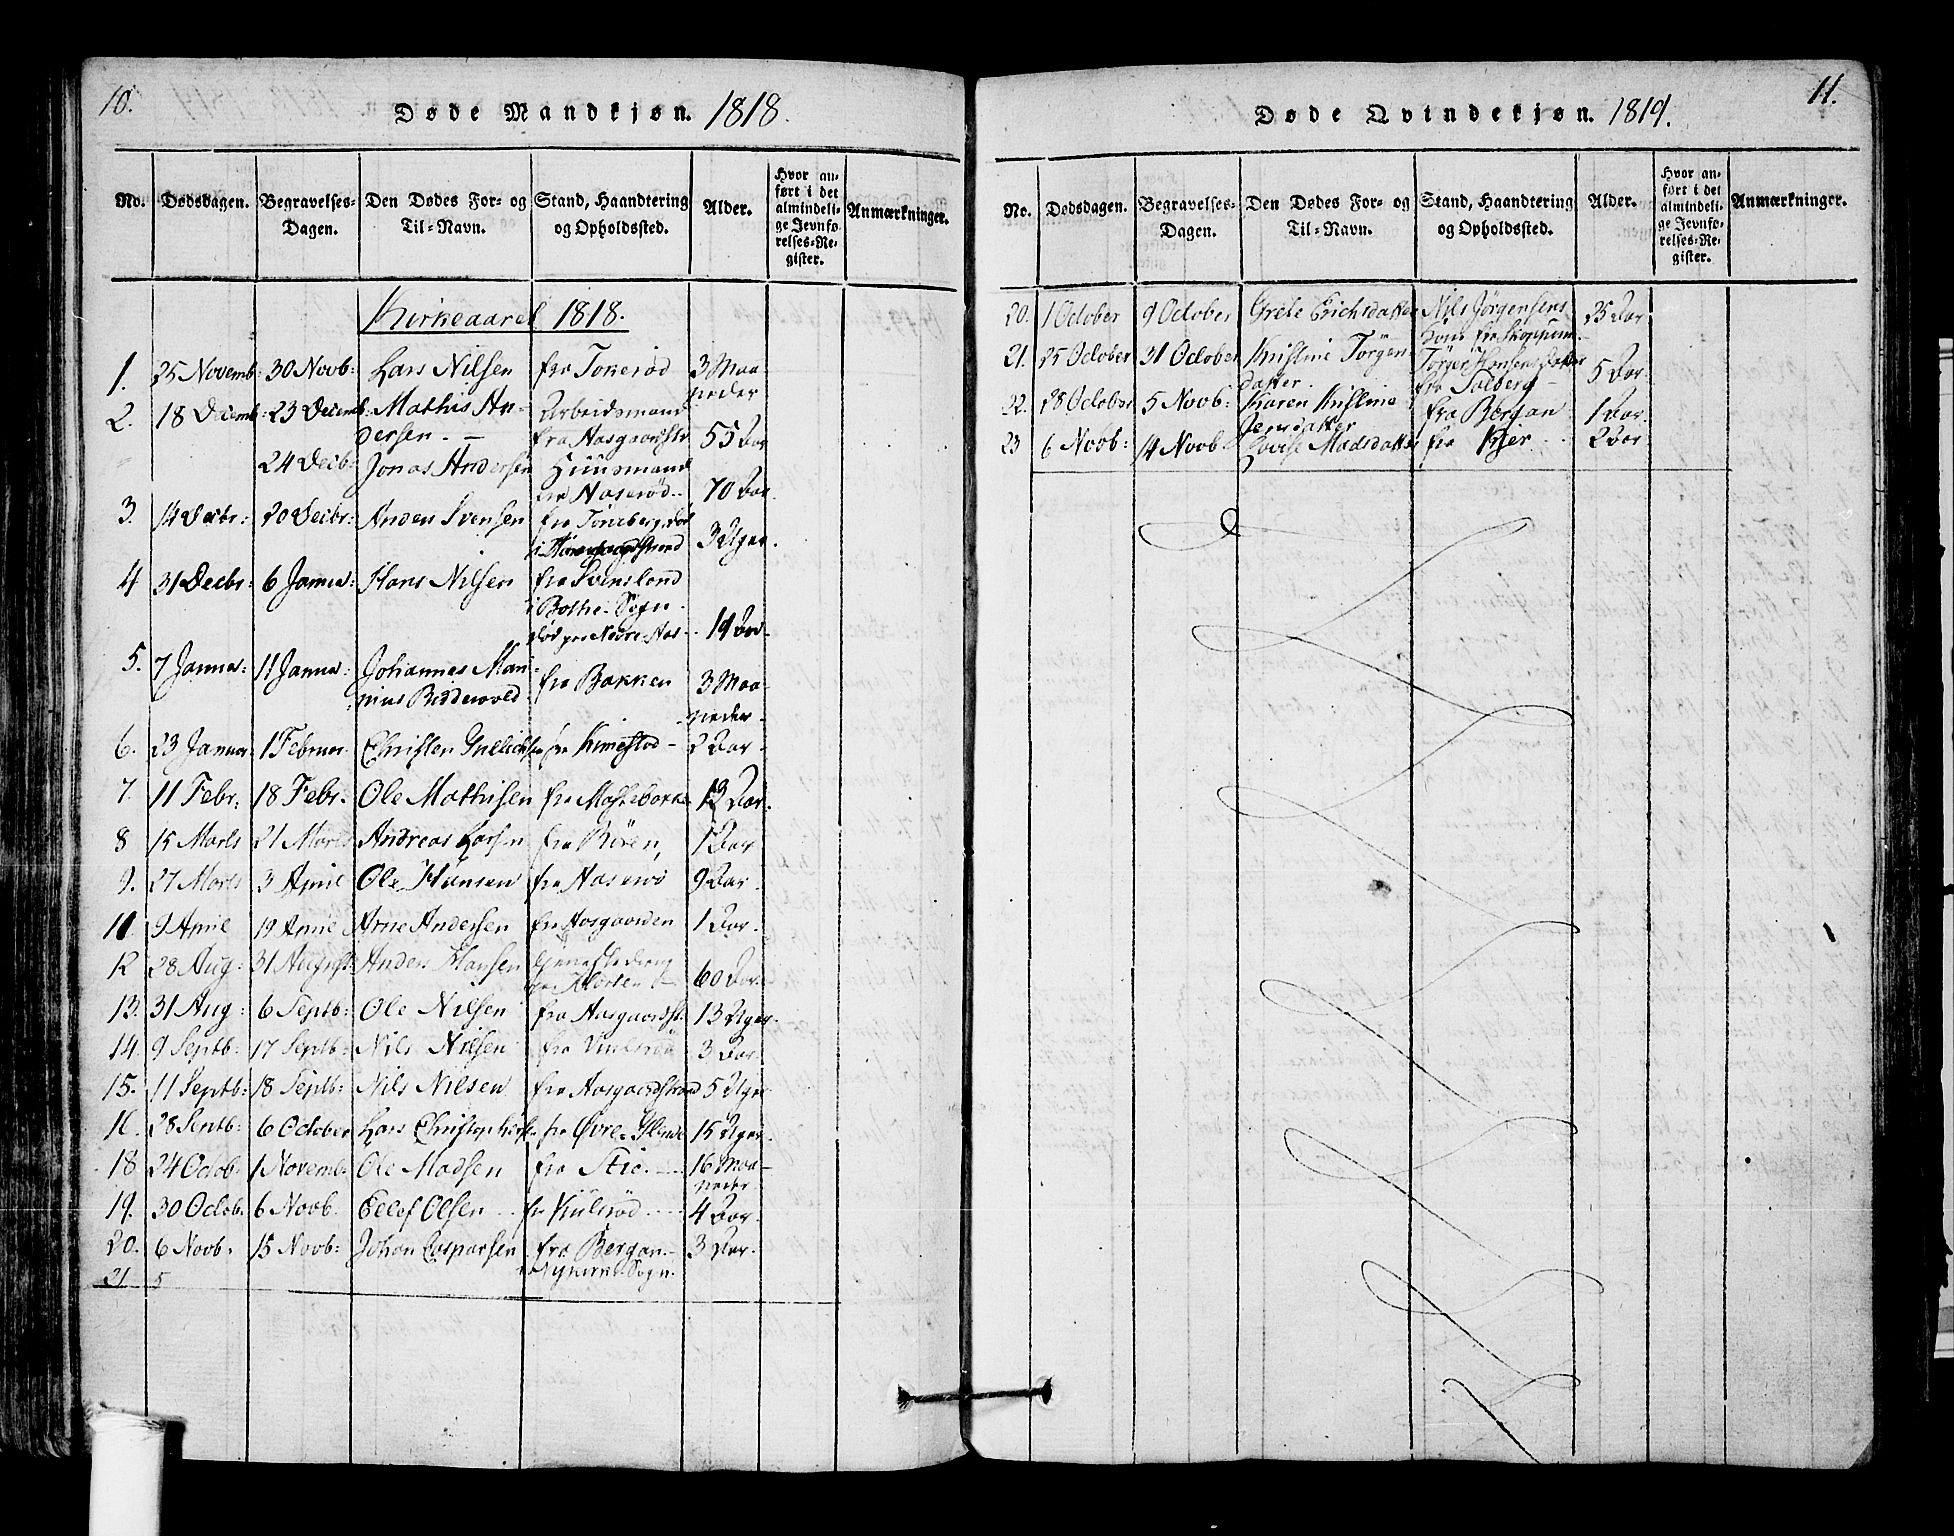 10.
Døde Mandkjøn. 1818.
No. Dødsdagen. Begravelses-Dagen. Den Dødes For- og Til-Navn. Stand, Haandtering og Opholdssted. Alder. Hvor anført i det almindelige Jevnførelses-Register. Anmærkninger.
Kirkeaaret 1818.
1. 25 Novemb: 30 Novb: Lars Nilsen fra Tokerød 3 Maaneder
2. 18 Decemb: 23 Decemb: Mathis Andersen. Arbeidsmand fra Aasgaardstr 55 Aar
24 Decb: Jonas Andersen Huusmand fra Aaserød 70 Aar.
3. 14 Decbr: 20 Decbr: Anders Svensen fra Tønsberg, død i 3 Uger.
4 31 Decbr: 6 Januar: Hans Nilsen fra i Bothe-Sogn. død paa Nedre-Aas 19 Aar
5. 7 Januar: 11 Januar: Johannes fra Bakken 3 Maaneder
6. 23 Januar: 1 Februar. Christen fra 2 Aar
7. 11 Febr: 18 Febr. Ole Mathisen fra 13 Aar.
8 15 Marts 21 Marts Andreas Larsen fra 1 Aar
9. 27 Marts 3 April Ole Hansen fra Aaserød 9 Aar.
11 9 April 19 April Arne Andersen fra Aasgaarden 1 Aar.
12 28 Aug: 31 August: Anders Hansen 60 Aar.
13. 31 Aug: 6 Septb: Ole Nilsen fra Aasgaardst. 13 Uger.
14. 9 Septb: 17 Septb: Nils Nilsen fra 3 Aar.
15. 11 Septb: 18 Septb: Nils Nilsen fra Aasgaardstrand 5 Uger
16. 28 Septb: 6 October Lars Christophersen fra Øvre- 15 Uger.
18 24 Octob. 1 Novemb: Ole Madsen fra Stie. 16 Maaneder
19. 30 Octob. 6 Novb. Ellef Olsen fra 4 Aar.
20. 6 Novb. 15 Novb: Johan Casparsen fra Bergan. i Nykirke-Sogn. 3 Aar.
21 5
11.
Døde Qvindekjøn. 1819.
No. Dødsdagen. Begravelses-Dagen. Den Dødes For- og Til-Navn. Stand, Haandtering og Opholdssted. Alder. Hvor anført i det almindelige Jevnførelses-Register. Anmærkninger.
20. 1 October 9 October Grete Erichsdatter Nils Jørgensens Kone fra Skoppum 25 Aar
21. 25 October 31 October Kristine Jørgendatter. Jørgen Hansens Datter fra Solberg 5 Aar.
22. 28 October 5 Novb: Karen Kristine Jensdatter fra Bergan 1 Aar.
23 6 Novb: 14 Novb. Lovise Madsdatter fra Kjer 2 Aar